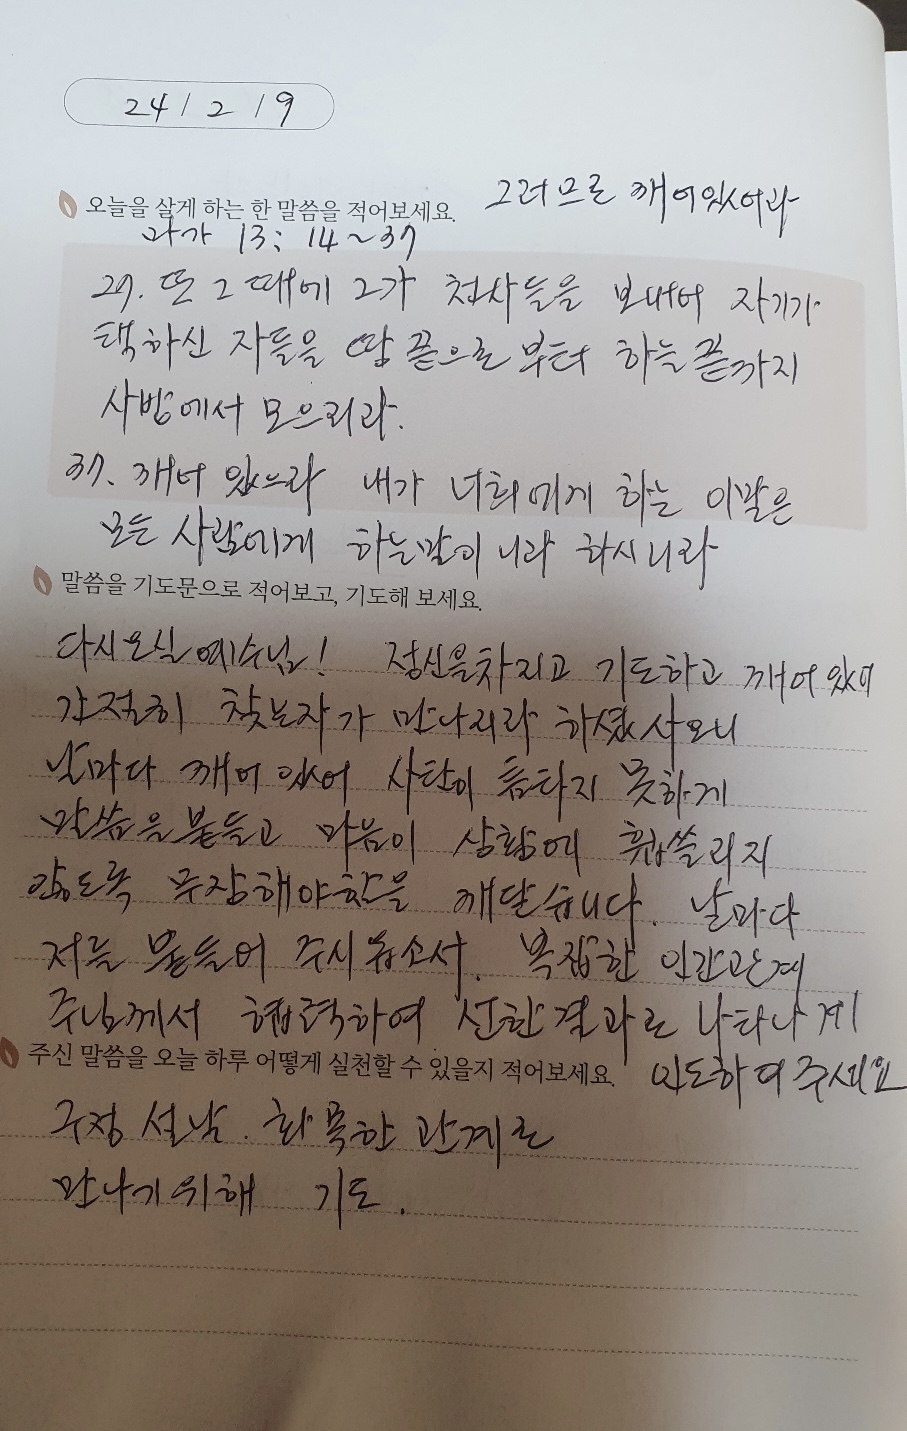 24 / 2 / 9
오늘을 살게 하는 한 말씀을 적어보세요. 그러므로 깨어있어라
마가 13: 14~37
27. 또 그 때에 그가 천사들을 보내어 자기가
택하신 자들을 땅 끝으로 부터 하늘 끝까지
사방에서 모으리라.
37. 깨어 있으라 내가 너희에게 하는 이말은
모든 사람에게 하는말이니라 하시니라
말씀을 기도문으로 적어보고, 기도해 보세요.
다시오실 예수님! 정신을차리고 기도하고 깨어있어
간절히 찾는자가 만나리라 하셨사오니
날마다 깨어 있어 사탄이 틈타지 못하게
말씀을 붙들고 마음이 상황에 휩쓸리지
않도록 무장해야함을 깨달습니다. 날마다
저를 붙들어 주시옵소서. 복잡한 인간관계
주님께서 협력하여 선한결과로 나타나게
주신 말씀을 오늘 하루 어떻게 실천할 수 있을지 적어보세요. 인도하여주세요
구정 설날. 화목한 관계로
만나기위해 기도.